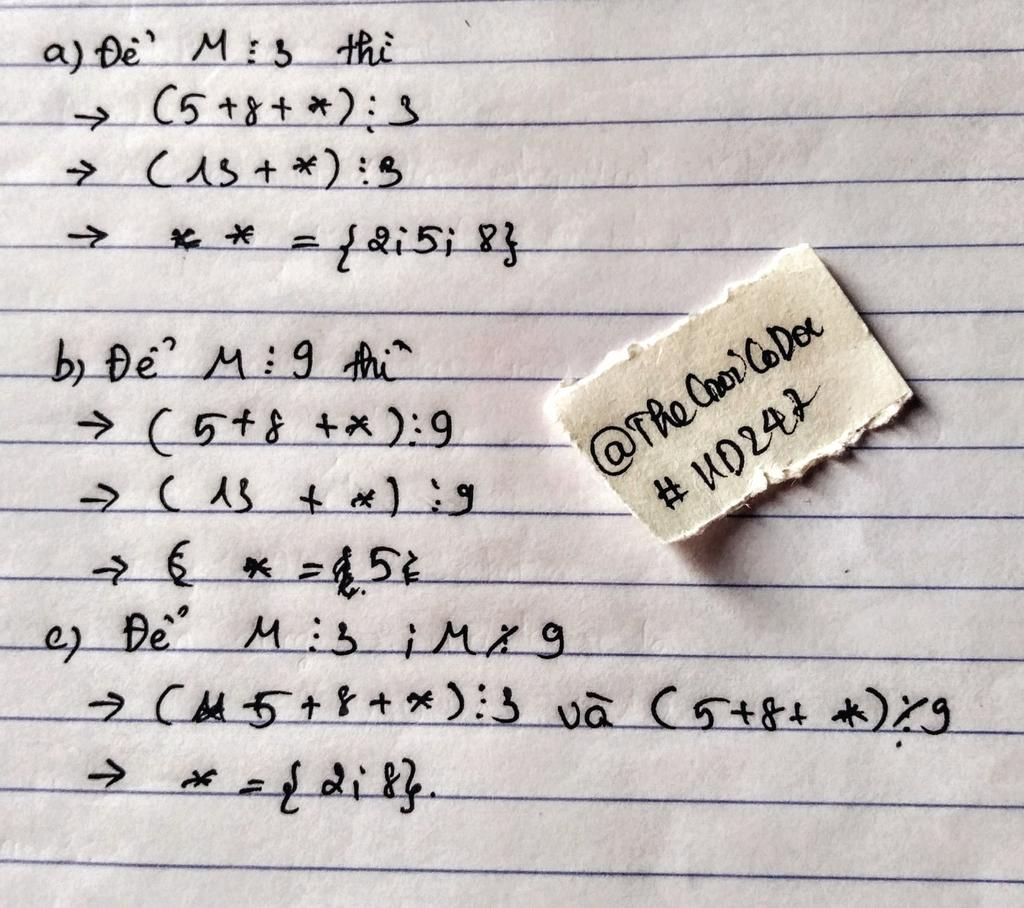 a) Để M ⋮ 3 thì
→ (5 + 8 + *) ⋮ 3
→ (13 + *) ⋮ 3
→ * = {2; 5; 8}
b) Để M ⋮ 9 thì
→ (5 + 8 + *) ⋮ 9
→ (13 + *) ⋮ 9
→ * = {5}
c) Để M ⋮ 3 ; M ⋮̸ 9
→ (5 + 8 + *) ⋮ 3 và (5 + 8 + *) ⋮̸ 9
→ * = {2; 8}.
#HD247